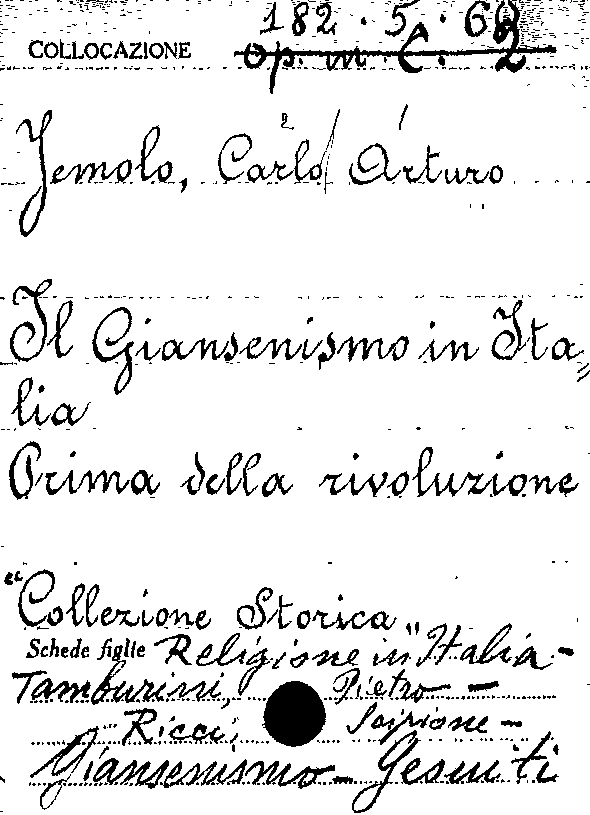 182.5.62
COLLOCAZIONE op. m. C. 2
Jemolo, Carlo Arturo
Il Giansenismo in Ita=
lia
Prima della rivoluzione
"Collezione Storica"
Schede figlie Religione in Italia -
Tamburini, Pietro -
Ricci, Scipione -
Giansenismo - Gesuiti